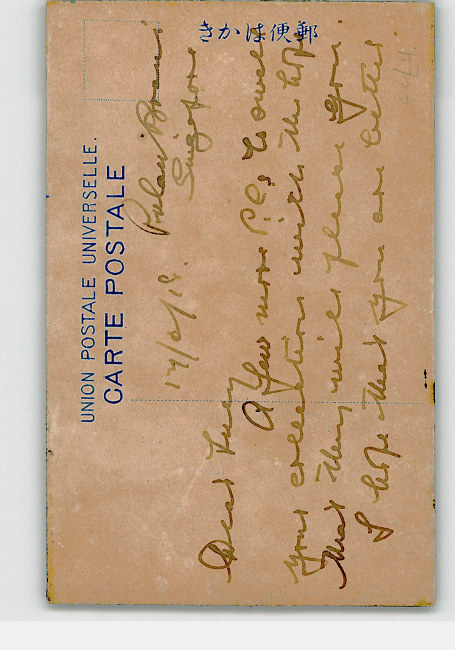 郵便はかき
UNION POSTALE UNIVERSELLE.
CARTE POSTALE
Pulau Brani
Singapore
Dear Lucy
A few more P.C's to swell
your collection with the hope
that they will please you
I hope that you are better